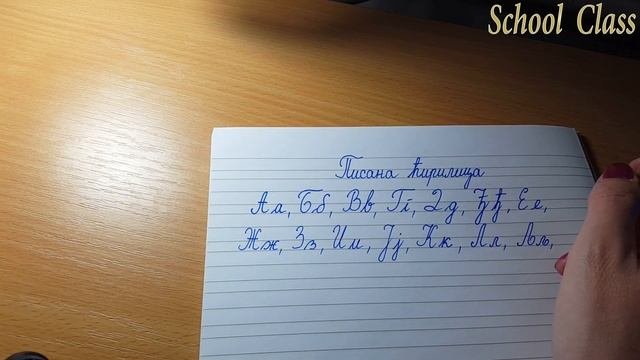 School Class
Писана ћирилица
Аа, Бб, Вв, Гг, Дд, Ђђ, Ее,
Жж, Зз, Ии, Јј, Кк, Лл, Љљ,